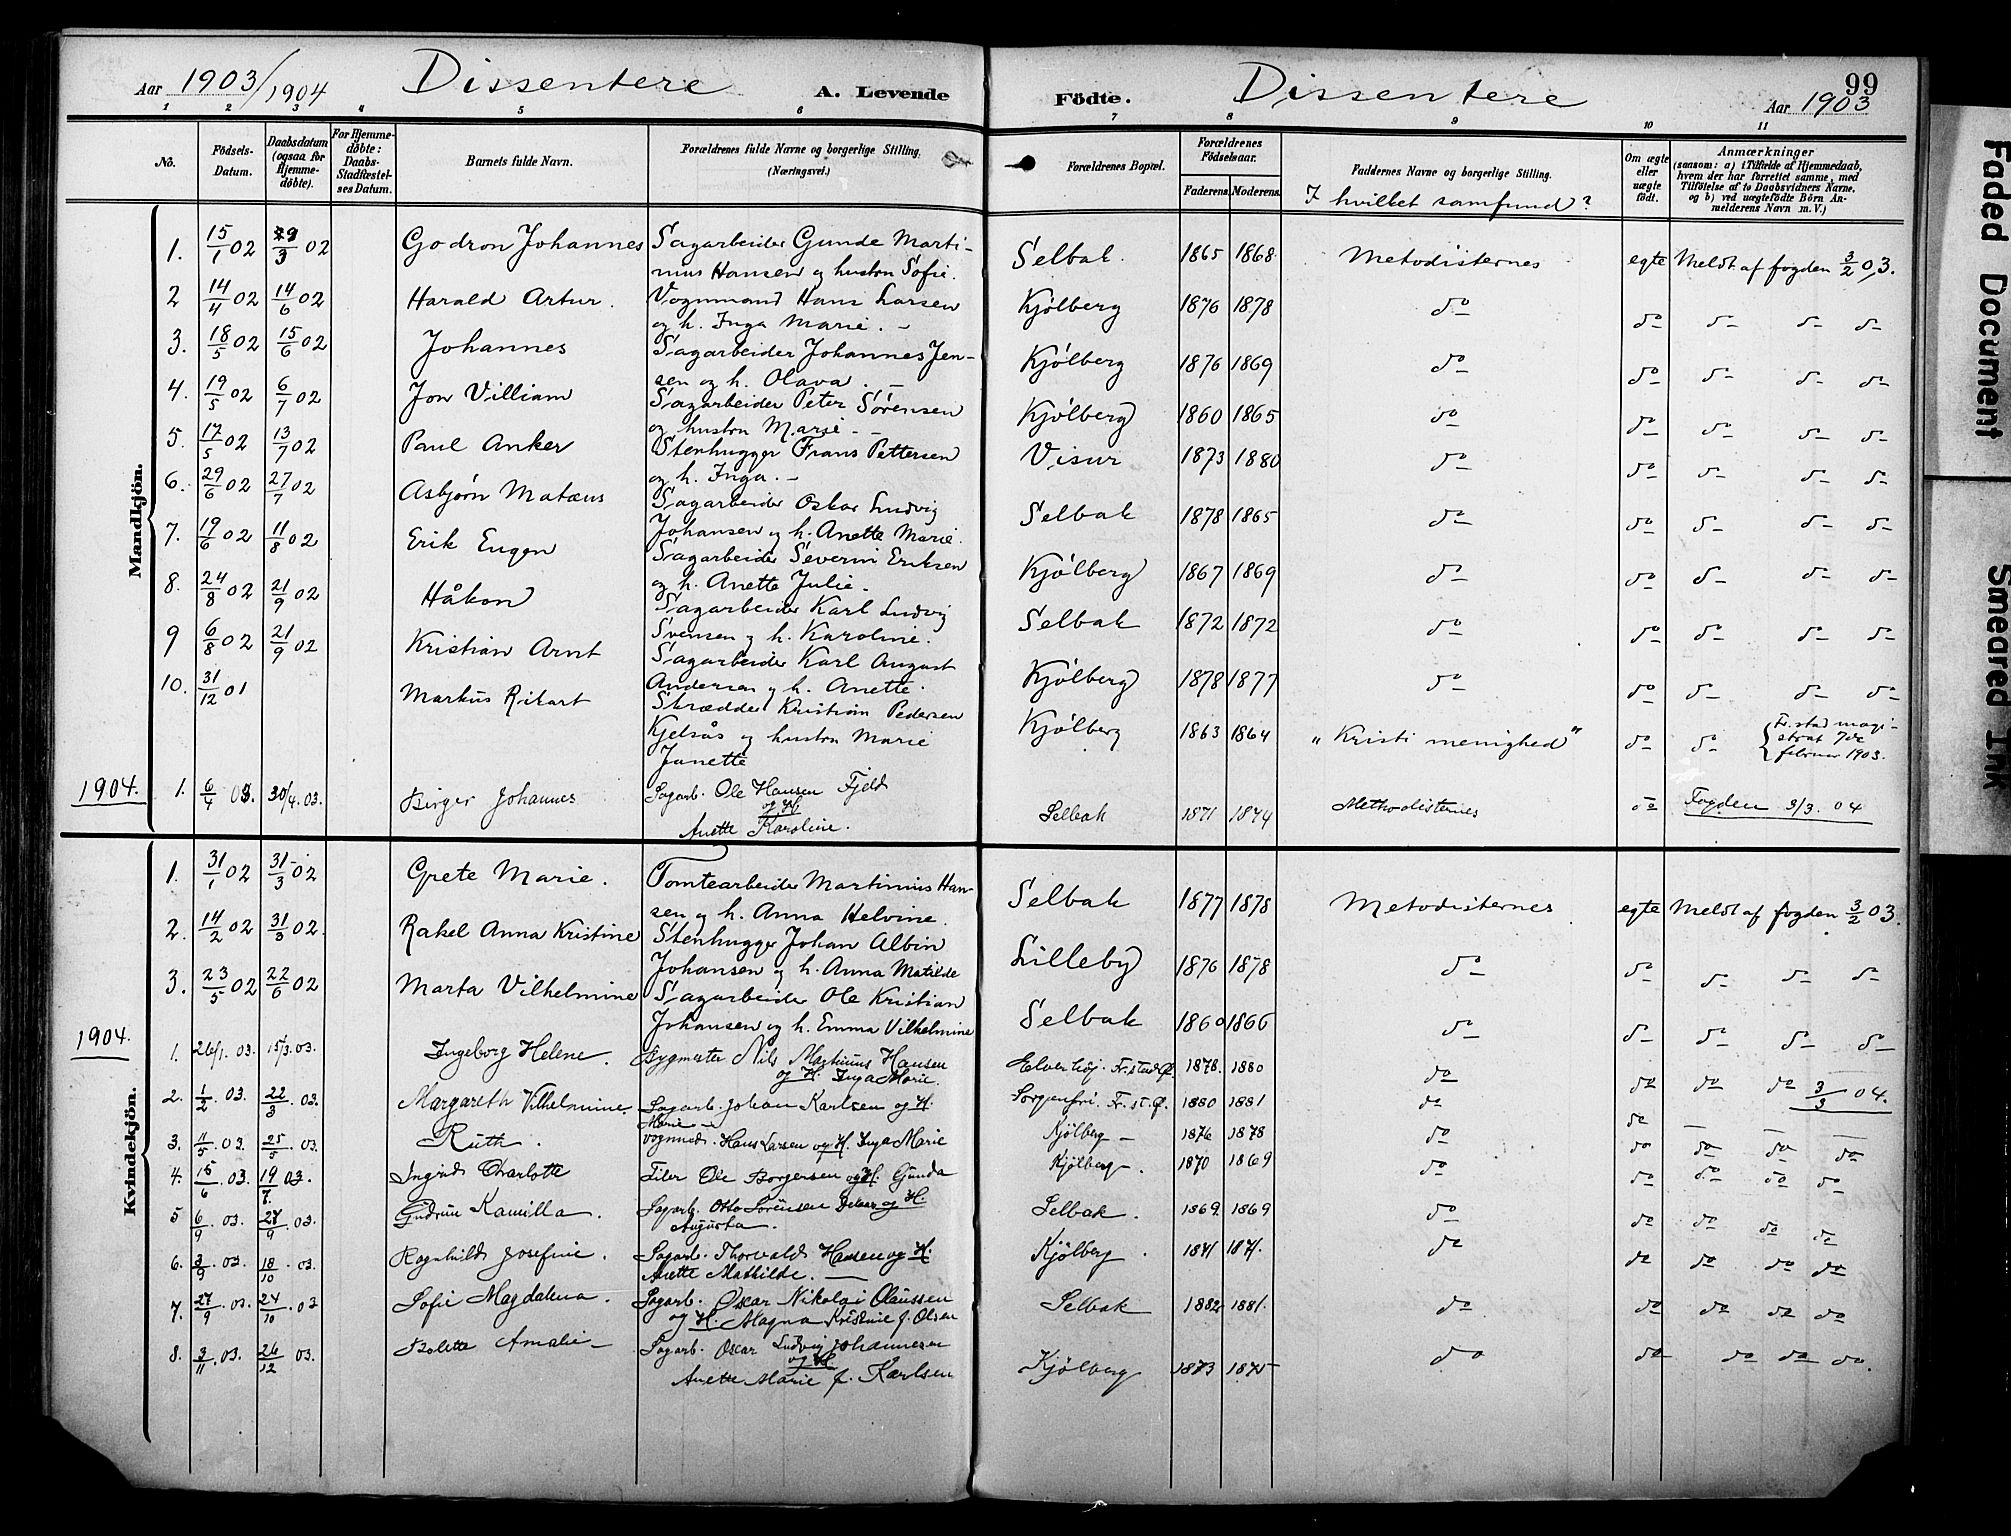 Aar 1903/1904 Dissentere A. Levende Födte. Dissentere Aar 1903 99
1 2 3 4 5 6 7 8 9 10 11
No. Födsels-Datum. Daabsdatum (ogsaa for Hjemme-döbte). For Hjemme-döbte: Daabs-Stadfæstel-ses Datum. Barnets fulde Navn. Forældrenes fulde Navne og borgerlige Stilling. (Næringsvei.) Forældrenes Bopæl. Forældrenes Födselsaar. Faderens. Moderens. Faddernes Navne og borgerlige Stilling. I hvilket samfund? Om ægte eller uægte födt. Anmærkninger (saasom: a) i Tilfælde af Hjemmedaab, hvem der har forrettet samme, med Tilföielse af to Daabsvidners Navne, og b) ved uægtefödte Börn An-melderens Navn m. V.)
Mandkjön.
1. 15/1 02 /3 02 Godron Johannes Sagarbeider Gunde Marti-
nius Hansen og hustru Sofie. Selbak. 1865 1868. Metodisternes egte Meldt af fogden 3/2 03.
2 14/4 02 14/6 02 Harald Artur. Vognmand Hans Larsen
og h. Inga Marie. – Kjölberg 1876 1878 do do do do do
3. 18/5 02 15/6 02 Johannes Sagarbeider Johannes Jen-
sen og h. Olava. – Kjölberg 1876 1869 do do do do do
4. 19/5 02 6/7 02 Jon Villiam Sagarbeider Peter Sörensen
og hustru Marie – Kjölberg 1860 1865 do do do do do
5. 17/5 02 13/7 02 Paul Anker Stenhugger Frans Pettersen
og h. Inga. – Visur 1873 1880 do do do do do
6. 29/6 02 27/7 02 Asbjørn Matæus Sagarbeider Oskar Ludvig
Johansen og h. Anette Marie. Selbak 1878 1865 do do do do do
7. 19/6 02 11/8 02 Erik Eugen Sagarbeider Severin Eriksen
og h. Anette Julie. Kjölberg 1867 1869 do do do do do
8. 24/8 02 21/9 02 Håkon Sagarbeider Karl Ludvig
Svensen og h. Karoline. Selbak 1872 1872 do do do do do
9 6/8 02 21/9 02 Kristian Arnt Sagarbeider Karl August
Andersen og h. Anette. Kjölberg 1878 1877 do do do do do
10. 31/12 01 Markus Rikart Skrædder Kristian Pedersen
Kjelsås og hustru Marie
Janette Kjölberg 1863 1864 „Kristi menighed” do do Fr.stad magi-
strat 7de
februar 1903.
1904. 1. 6/4 03. 30/4. 03. Birger Johannes Sagarb. Ole Hansen Fjeld
og H.
Anette Karoline. Selbak 1871 1874 Methodisternes do Fogden 3/3. 04
Kvindekjön.
1. 31/1 02 31/3 02 Grete Marie. Tomtearbeider Martinius Han-
sen og h. Anna Helvine. Selbak 1877 1878 Metodisternes egte Meldt af fogden 3/2 03.
2. 14/2 02 31/3 02. Rakel Anna Kristine Stenhugger Johan Albin
Johansen og h. Anna Matilde Lilleby 1876 1878 do do do do do
3. 23/5 02 22/6 02 Marta Vilhelmine Sagarbeider Ole Kristian
Johansen og h. Emma Vilhelmine Selbak 1860 1866 do do do do do
1904. 1. 26/1. 03. 15/3. 03. Ingeborg Helene. Bygmester Nils Martinius Hansen
og H. Inga Marie. Elverhöj. Fr.stad 1878. 1880 do do do do 3/3 04.
2. 1/2 03. 22/3. 03. Margareth Vilhelmine. Sagarb. Johan Karlsen og H.
Marie – Sorgenfri. Fr.st. 1880 1881 do do
3. 11/5. 03. 25/5. 03. Ruth. Vognmd. Hans Larsen og H. Inga Marie Kjölberg – 1876 1878 do do do do do
4. 15/6. 03. 19/7. 03. Ingrid Charlotte Filer Ole Borgersen og H. Gunda Kjölberg. 1870 1869 do do do do do
5 6/9. 03. 27/9. 03. Gudrun Kamilla. Sagarb. Otto Sörensen og H.
Augusta. Selbak. 1869. 1869 do do do do do
6. 3/9. 03. 18/10. 03. Ragnhild Josefine. Sagarb. Thorvald Hansen og H.
Anette Mathilde. – Kjölberg. 1871 1871. do do do do do
7. 27/9. 03. 24/10. 03 Sofie Magdalena. Sagarb. Oscar Nikolai Olaussen
og H. Magna Kristine f. Olsen Selbak 1882 1881. do do do do do
8. 3/11. 03. 26/12 03. Bolette Amalie – Sagarb. Oscar Ludvig Johannesen
og H.
Anette Marie f. Karlsen Kjölberg 1873 1875 do do do do do
Faded Document
Smeared Ink